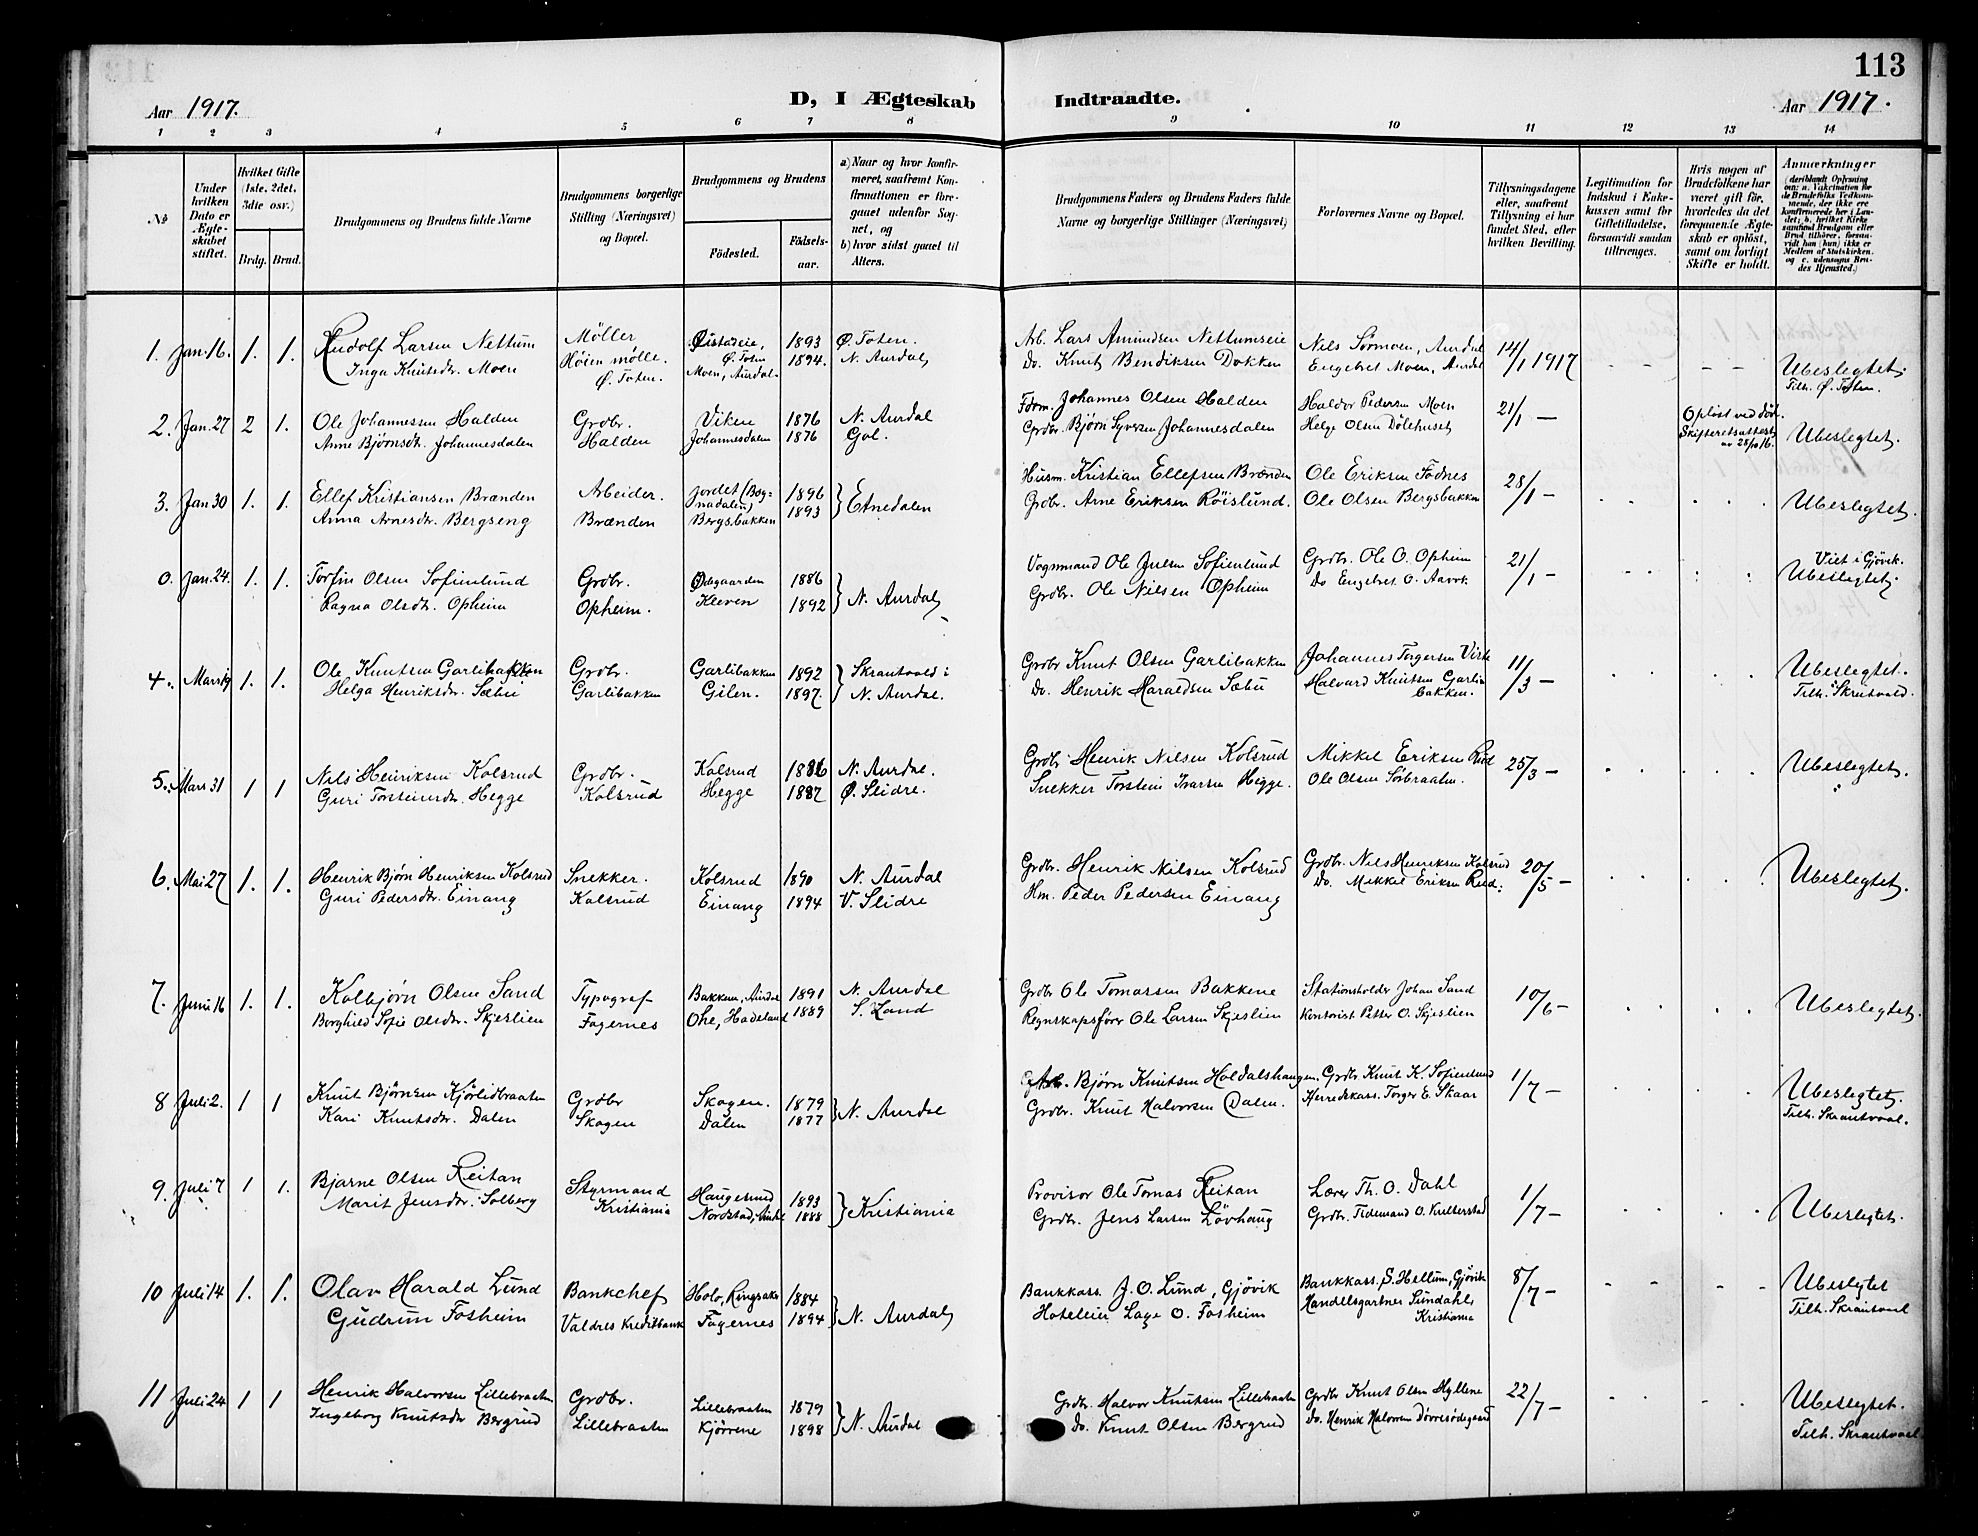 113
Aar 1917.
D, I Ægteskab
Indtraadte.
Aar 1917.
1 2 3 4 5 6 7 8 9 10 11 12 13 14
No
Under hvilken Dato er Ægteskabet stiftet.
Hvilket Gifte (1ste, 2det, 3die osv.)
Brdg. Brud.
Brudgommens og Brudens fulde Navne
Brudgommens borgerlige Stilling (Næringsvei) og Bopæl.
Brudgommens og Brudens
Fødested.
Fødselsaar.
a) Naar og hvor konfirmeret, saafremt Konfirmationen er foregaaet udenfor Sognet, og
b) hvor sidst gaaet til Alters.
Brudgommens Faders og Brudens Faders fulde Navne og borgerlige Stillinger (Næringsvei)
Forlovernes Navne og Bopæl.
Tillysningsdagene eller, saafremt Tillysning ei har fundet Sted, efter hvilken Bevilling.
Legitimation for Indskud i Enkekassen samt for Giftetilladelse, forsaavidt saadan tiltrænges.
Hvis nogen af Brudefolkene har været gift før, hvorledes da det foregaaende Ægteskab er opløst, samt om lovligt Skifte er holdt.
Anmærkninger
(deriblandt Oplysning om: a. Vakcination for de Brudefolks Vedkommende, der ikke ere konfirmerede her i Landet; b. hvilket Kirkesamfund Brudgom eller Brud tilhører, forsaavidt han (hun) ikke er Medlem af Statskirken, og c. udensogns Brudes Hjemsted.)
1. Jan. 16. 1. 1. Rudolf Larsen Nettum Möller 1893 Ø. Toten. Arb. Lars Amundsen Nettumseie Nils Sörmoen, Aurdal 14/1 1917 - - - - Ubeslegtet.
Inga Knutsdr. Moen Höien mölle. Ø. Toten. Moen, Aurdal. 1894. N. Aurdal Do. Knut Bendiksen Dokken Engebret Moen, Aurdal Tilh. Ø. Toten.
2. Jan. 27 2 1. Ole Johannessen Halden Grdbr. Viken 1876 N. Aurdal Fdrm. Johannes Olsen Halden Haldor Pedersen Moen 21/1 - Opløst ved död. Ubeslegtet.
Anne Bjørnsdr. Johannesdalen Halden Johannesdalen 1876 Gol. Grdbr. Bjørn Syversen Johannesdalen Helge Olsen Dölehuset Skifteretsattest av 28/10 16.
3. Jan 30 1. 1. Ellef Kristiansen Brænden Arbeider. Jordet (Bognadalen) 1896 } Etnedalen Husm. Kristian Ellefsen Brænden Ole Eriksen Fodnes 28/1 - Ubeslegtet.
Anna Arnesdr. Bergseng Brænden Bergsbakken 1893 Grdbr. Arne Eriksen Röislund. Ole Olsen Bergsbakken
0. Jan. 24. 1. 1. Torfin Olsen Sofienlund Grdbr. Ødegaarden 1886 } N. Aurdal Vognmand Ole Julsen Sofienlund Grdbr. Ole O. Opheim 21/1 - Viet i Gjövik.
Ragna Olsdr. Opheim Opheim. Kleven 1892 Grdbr. Ole Nilsen Opheim Do Engebret O. Ubeslegtet.
4. Mars 19 1. 1. Ole Knutsen Garlibakken Grdbr. Garlibakken 1892 } Skrautvold i Grdbr Knut Olsen Garlibakken Johannes Torgersen Viste 11/3 - Ubeslegtet.
Helga Henriksdr. Sæbu Garlibakken Gilen. 1897. N. Aurdal. Do. Henrik Haraldsen Sæbu Halvard Knutsen Garlibakken. Tilh. Skrutvold.
5. Mars 31 1 1 Nils Henriksen Kolsrud Grdbr. Kolsrud 1886 N. Aurdal. Grdbr Henrik Nilsen Kolsrud Mikkel Eriksen Rud 25/3 - Ubeslegtet.
Guri Torsteinsdr. Hegge Kolsrud Hegge 1887 Ø. Slidre. Snekker Torstein Ivarsen Hegge. Ole Olsen Sörbraaten.
6. Mai 27 1. 1. Henrik Bjørn Henriksen Kolsrud Snekker. Kolsrud 1890 N. Aurdal Grdbr. Henrik Nilsen Kolsrud Grdbr. Nils Henriksen Kolsrud 20/5 - Ubeslegtet.
Guri Pedersdr. Einang Kolsrud Einang 1894 V. Slidre Hm. Peder Pedersen Einang Do. Mikkel Eriksen Rud.
7. Juni 16 1. 1. Kolbjørn Olsen Sand Typograf Bakken, Aurdal 1891 N. Aurdal Grdbr Ole Tomassen Bakkene Stationsholder Johan Sand 10/6 - Ubeslegtet.
Borghild Sofie Olsdr. Skjeslien Fagernes Ohe, Hadeland 1889 S. Land Regnskapsfører Ole Larsen Skjeslien Kontorist Petter O. Skjeslien
8 Juli 2. 1 1 Knut Bjørnsen Kjörlidbraaten Grdbr Skogen. 1879 } N. Aurdal Bjørn Knutsen Haldalshaugen. Grdbr Knut K. Sofienlund 1/7 - Ubeslegtet.
Kari Knutsdr. Dalen Skogen Dalen 1877 Grdbr. Knut Halvorsen Dalen. Herredskass. Torger E. Skaar Tilh. Skrautvaal.
9. Juli 7 1 1. Bjarne Olsen Reitan Styrmand Haugesund 1893 } Kristiania Provisor Ole Tomas Reitan Lærer Th. O. Dahl 1/7 - Ubeslegtet.
Marit Jensdr. Solberg Kristiania 1888 Grdbr. Jens Larsen Lövhaug Grdbr. Tidemand O. Kulterstad
10 Juli 14 1. 1. Olav Harald Lund Bankchef Holo, Ringsaker 1884 } N. Aurdal Bankkass. J. O. Lund, Gjøvik Bankkass. S. Hellum, Gjøvik 8/7 - - - - - Ubeslegtet
Gudrun Fosheim Valdres Kreditbank Fagernes 1894 Hoteleier Lage O. Fosheim Handelsgartner Sundahl, Kristiania Tilh. Skrautvaal
11 Juli 24 1 1 Henrik Halvorsen Lillebraaten Grdbr. Lillebraaten 1879 } N. Aurdal Grdbr. Halvor Knutsen Lillebraaten Grdbr Knut Olsen Hyllene 22/7 - Ubeslegtet.
Ingeborg Knutsdr Bergrud Lillebraaten Kjörrene 1898 Do. Knut Olsen Bergrud Do. Henrik Halvorsen Tilh. Skrautvaal.